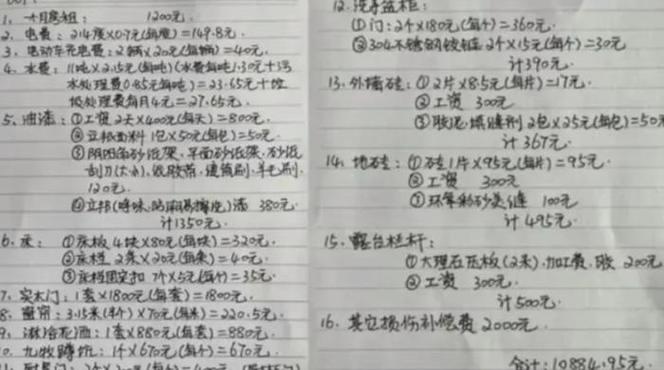 1、一个月房租： 1200元.
2、电费：214度×0.7元(每度)=149.8元.
3、电动车充电费：2辆×20元(每辆)=40元.
4、水费：11吨×2.15元(每吨)(水费每吨1.30元+污
水处理费0.85元每吨)=23.65元+垃
圾处理费每月4元=27.65元.
5、油漆：①工资 2天×400元(每天)=800元.
②立邦面料 1包×50元(每包)=50元.
③阴阳角砂纸架、平面砂纸架、砂纸
刮刀(大小)、纸胶带、滚筒刷、羊毛刷.
120元.
④立邦 漆 380元.
计1350元.
6、床：①床板 4块×80元(每块)=320元.
②床梃 2条×20元(每条)=40元.
③床梃固定扣 7个×5元(每个)=35元.
7、实木门：1套×1800元(每套)=1800元.
8、窗帘：3.15米×70元(每米)=220.5元.
9、淋浴花洒：1套×880元(每套)=880元.
0、九牧蹲坑：1个×670元(每个)=670元.
12、洗手盆柜：
①门：2个×180元(每个)=360元.
②304不锈钢铰链 2个×15元(每个)=30元
计390元.
13、外墙砖：①2片×8.5元(每片)=17元.
②工资 300元.
③胶泥、填缝剂 2包×25元(每包)=50元
计367元.
14、地砖：①砖1片×95元(每片)=95元.
②工资 300元
③环氧彩砂美缝 100元
计495元.
15、露台栏杆：
①大理石压板(2米)、加工费、胶 200元
②工资 300元.
计500元.
16、其它损伤补偿费 2000元.
合计：10884.95元.